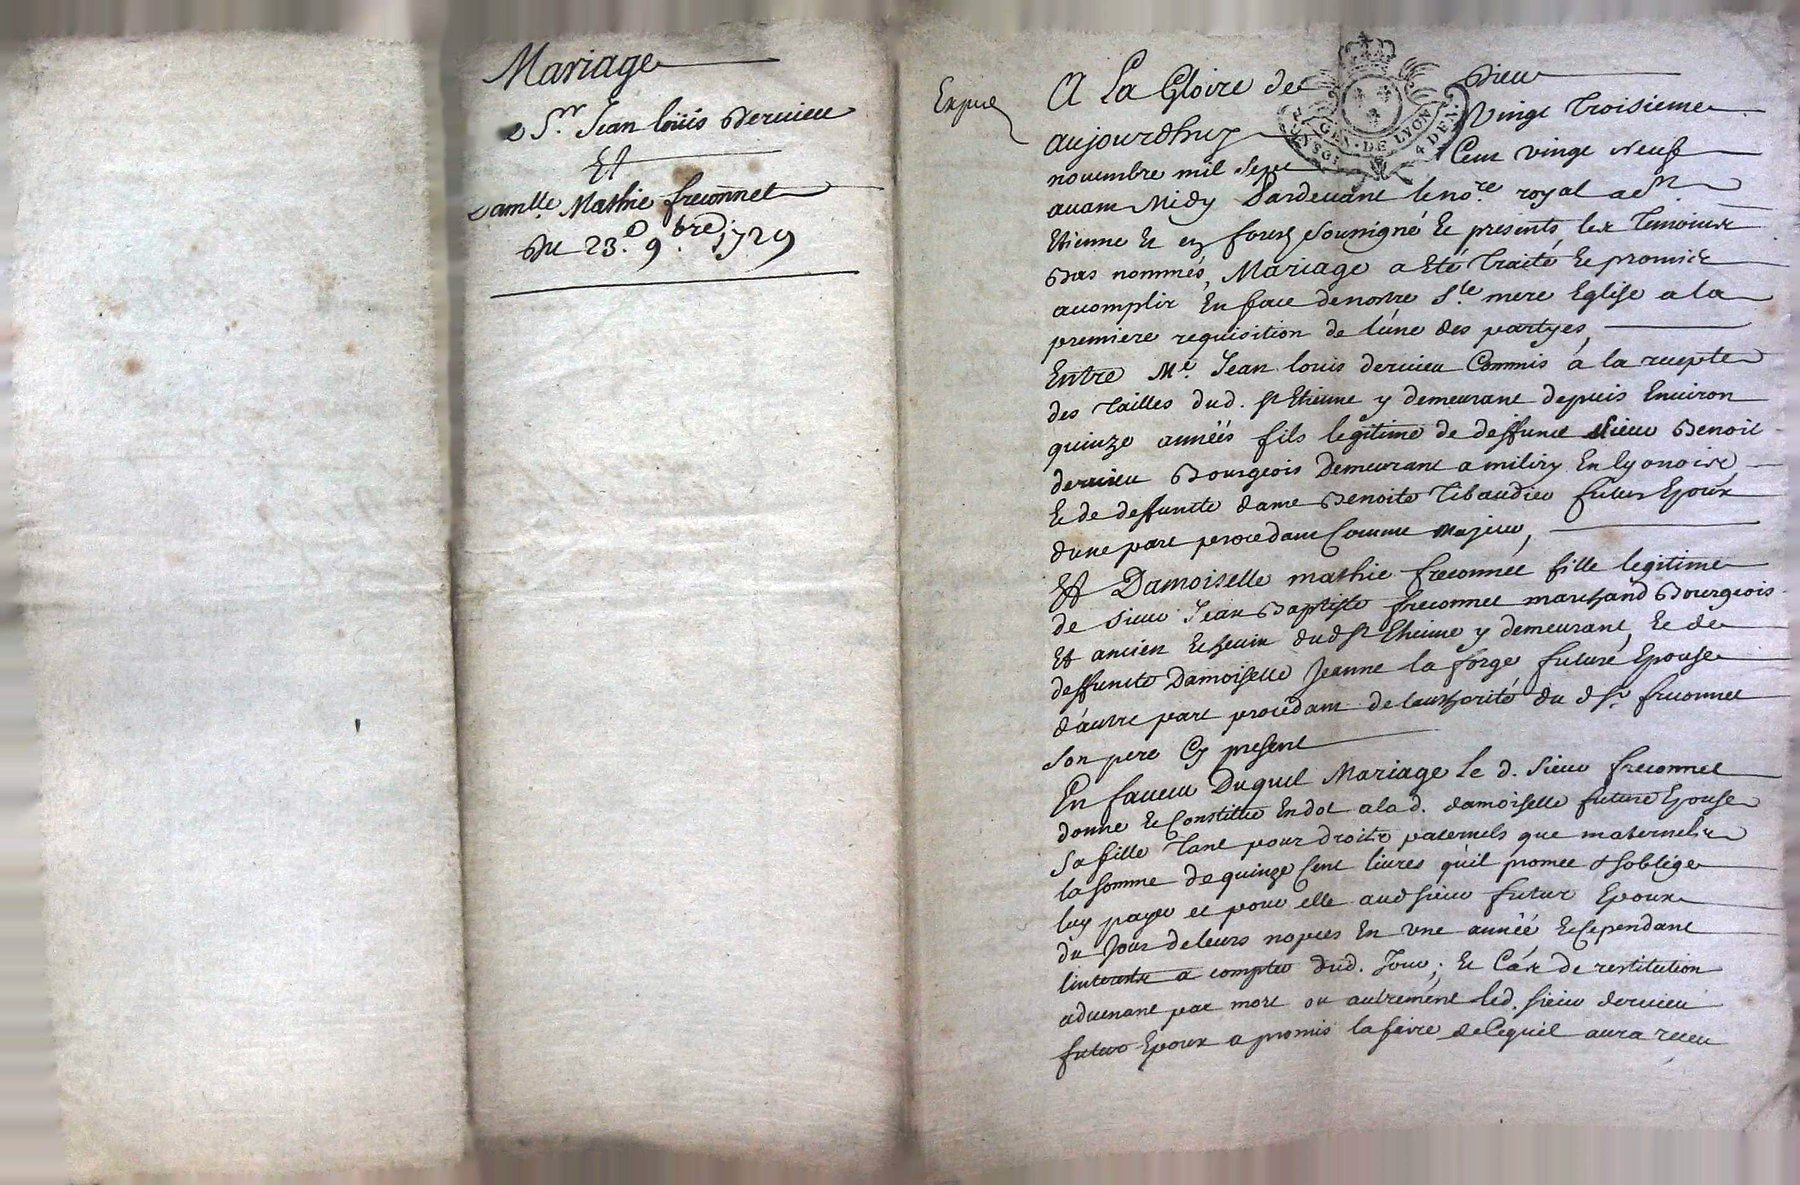 Mariage
D Sr. Jean loüis Dervieu
Et
Damlle. Mathie freconnet
Du 23.e 9.bre 1729
Expié
A La Gloire de Dieu
aujourdhuy Vingt Troisieme
novembre mil sept Cent vingt neuf
avant Midy Pardevant le nore. royal a St
Etienne et en forez soussigné et presents les Temoins
Bas nommés, Mariage a Eté Traité et promis
acomplir En face de nostre Ste. mere Eglise a la
premiere requisition de lúne des partyes,
Entre Me. Jean louis dervieu Commis á la recepte
des Tailles dud. St Etienne y demeurant depuis Environ
quinze annéés fils legitime de deffunct sieur Benoit
dervieu Bourgeois demeurant a milery En lyonois
et de deffuncte dame Benoite Tibaudier futur Epoux
dune part procedant Comme Majeur,
Et Damoiselle mathie freconnet fille legitime
de sieur Jean Baptiste freconnet marchand Bourgeois
Et ancien Echevin dud St Etienne y demeurant, et de
deffuncte Damoiselle Jeanne la forge future Epouse
d'autre part procedant de lauthorité du d Sr. freconnet
son pere Cy present
En faveur Duquel Mariage le d. sieur freconnet
donne et Constitue En dot a la d. damoiselle future Epouse
sa fille Tant pour droits paternels que maternels
la somme de quinze Cent livres qúil promet & soblige
luy payer et pour elle aud sieur futur Epoux
du Jour de leurs nopces En vne année et Cependant
linterest a compter dud. Jour; et Cás de restitution
advenant par mort ou autrement led. sieur dervieu
futur Epoux a promis la faire de Cequil aura receu
GEN. DE LYON
4 DEN.